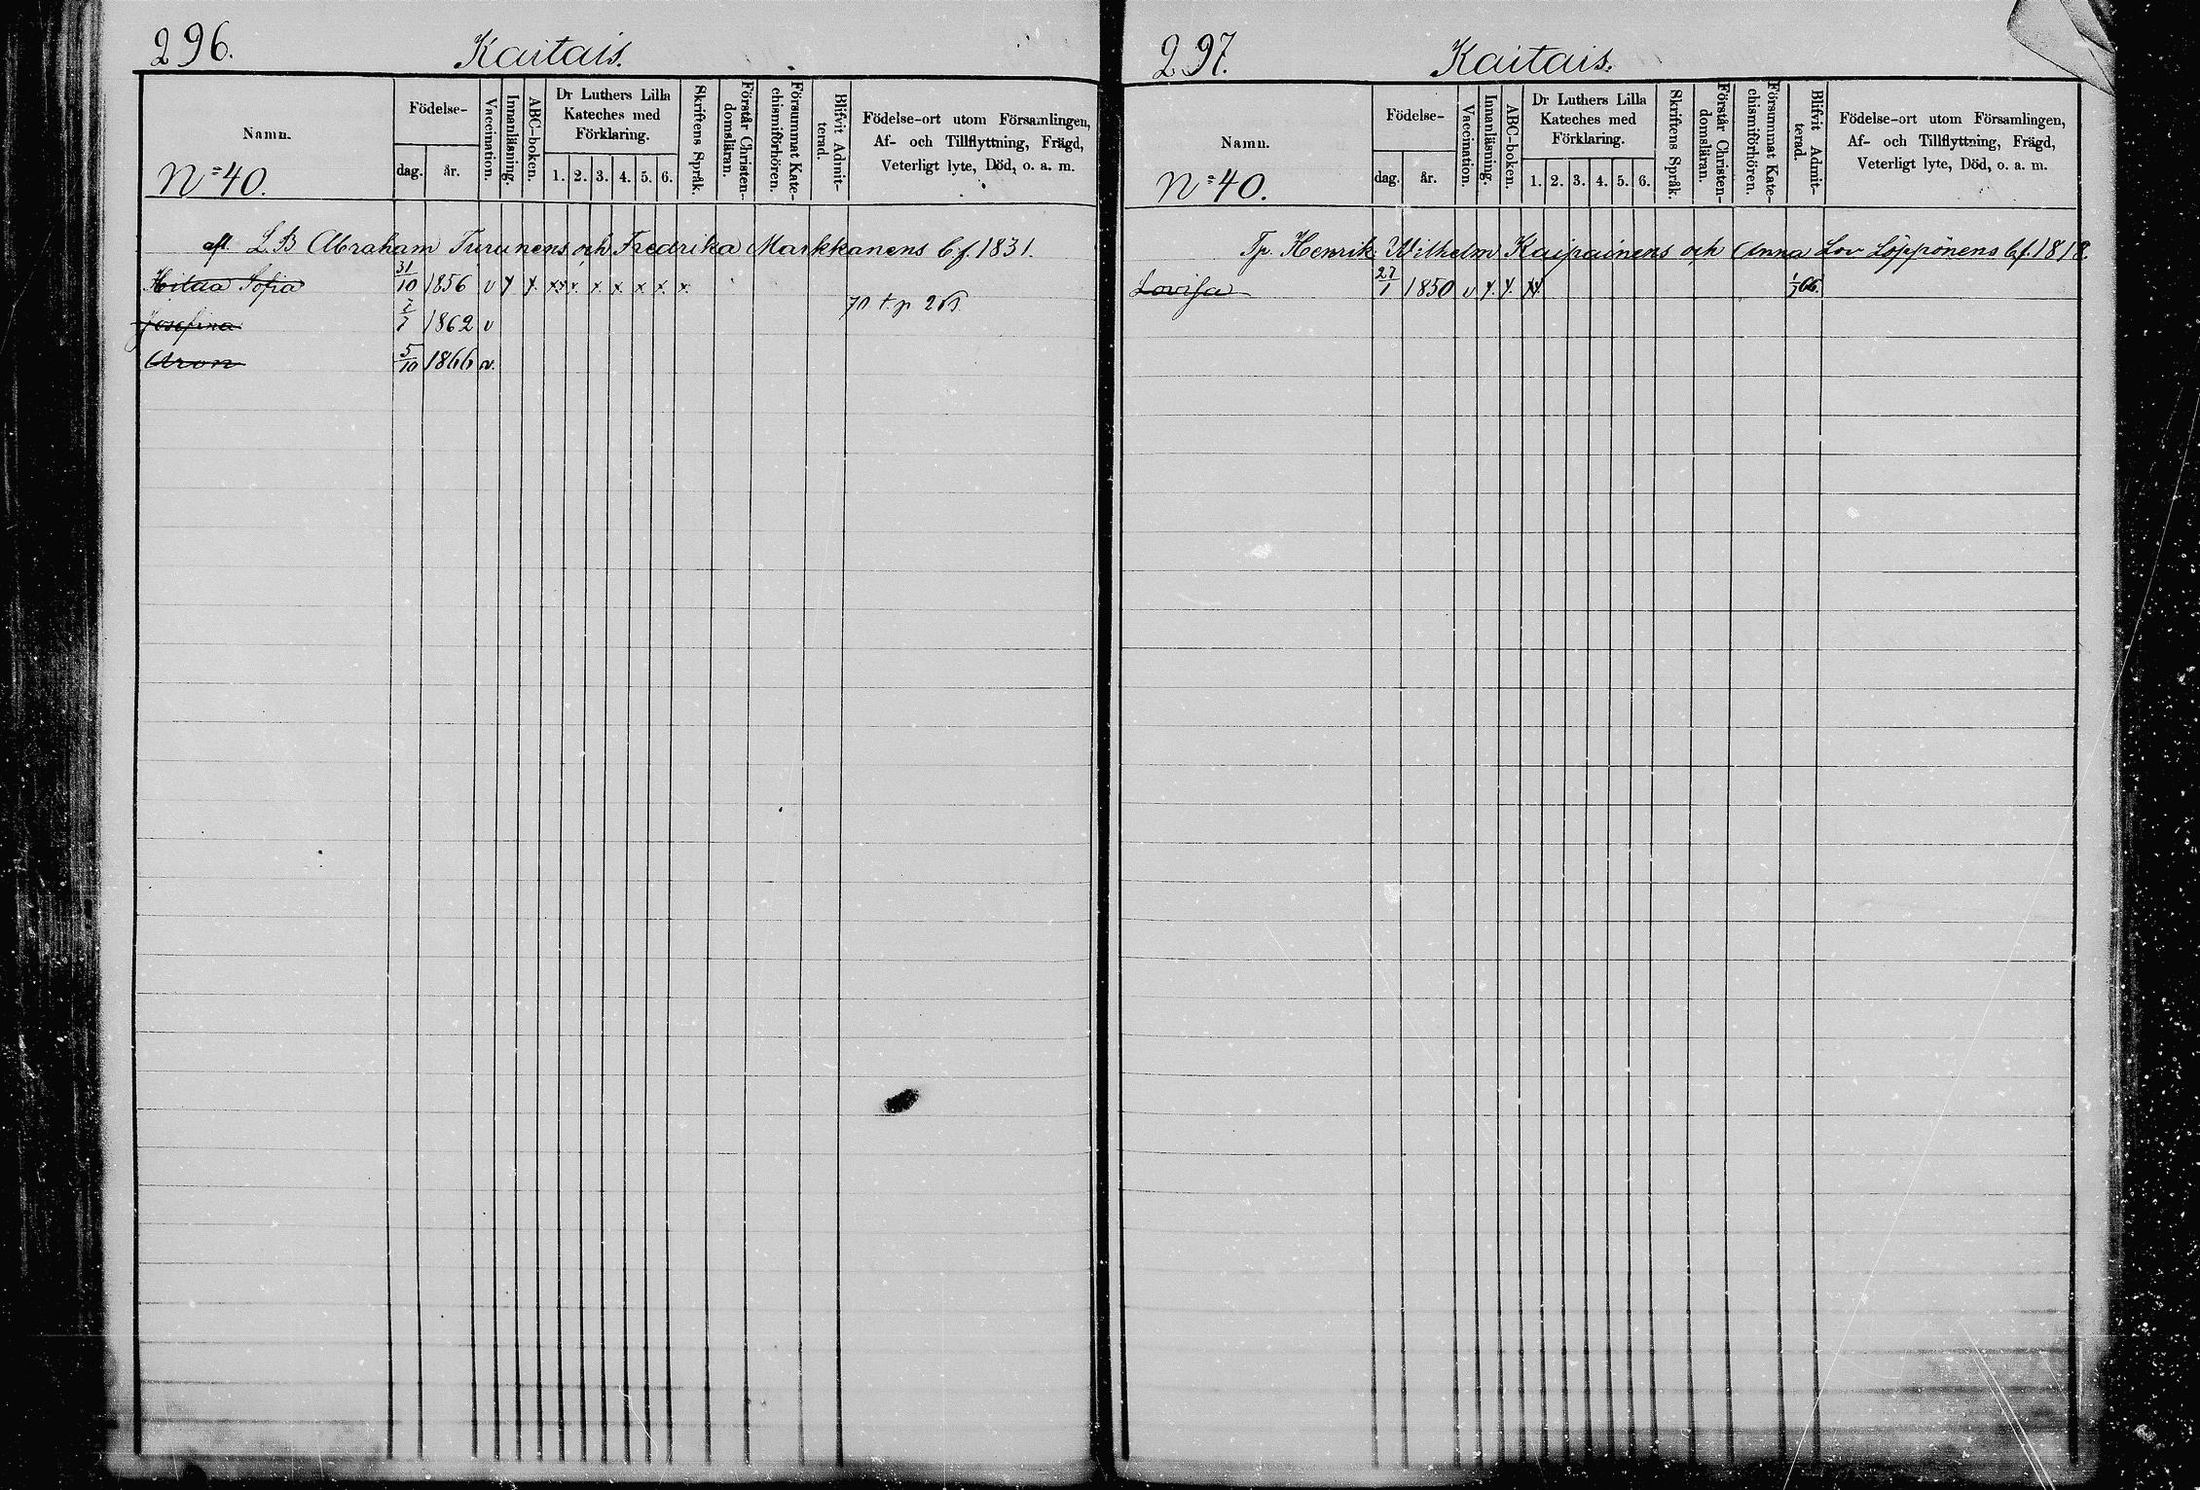 296.
Kaitais.
Namn.
N=40.
Födelse-
dag.
år.
Vaccination.
Innanläsning.
ABC-boken.
Dr Luthers Lilla
Kateches med
Förklaring.
1. 2. 3. 4. 5. 6.
Skriftens Språk.
Förstår Christen-
domsläran.
Försummat Kate-
chismiförhören.
Blifvit Admit-
terad.
Födelse-ort utom Församlingen,
Af- och Tillflyttning, Frägd,
Veterligt lyte, Död, o. a. m.
afl. L B Abraham Turunens och Fredrika Markkanens b. f. 1831.
Hilda Sofia 31/10 1856 v x x. xx x. x. x. x. x. x.
Josefina 2/7 1862 v
Aron 5/10 1866 v.
297.
Kaitais.
Namn.
N=40.
Födelse-
dag.
år.
Vaccination.
Innanläsning.
ABC-boken.
Dr Luthers Lilla
Kateches med
Förklaring.
1. 2. 3. 4. 5. 6.
Skriftens Språk.
Förstår Christen-
domsläran.
Försummat Kate-
chismiförhören.
Blifvit Admit-
terad.
Födelse-ort utom Församlingen,
Af- och Tillflyttning, Frägd,
Veterligt lyte, Död, o. a. m.
Tp. Henrik Wilhelm Kaipainens och Anna Lov Löppönens b. f. 1818.
Lovisa 27/1 1850 v x. x. xx